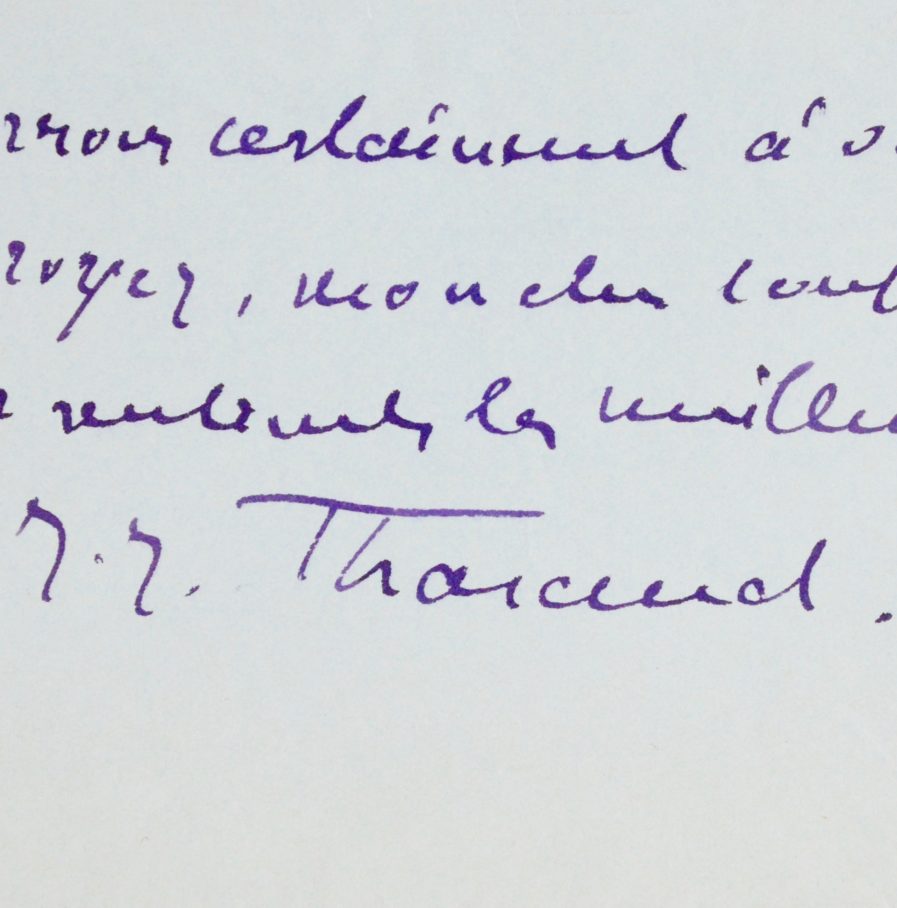 rrons certainement à v
royez, mon cher conf
sentiments les meilleu
J. J. Tharaud.